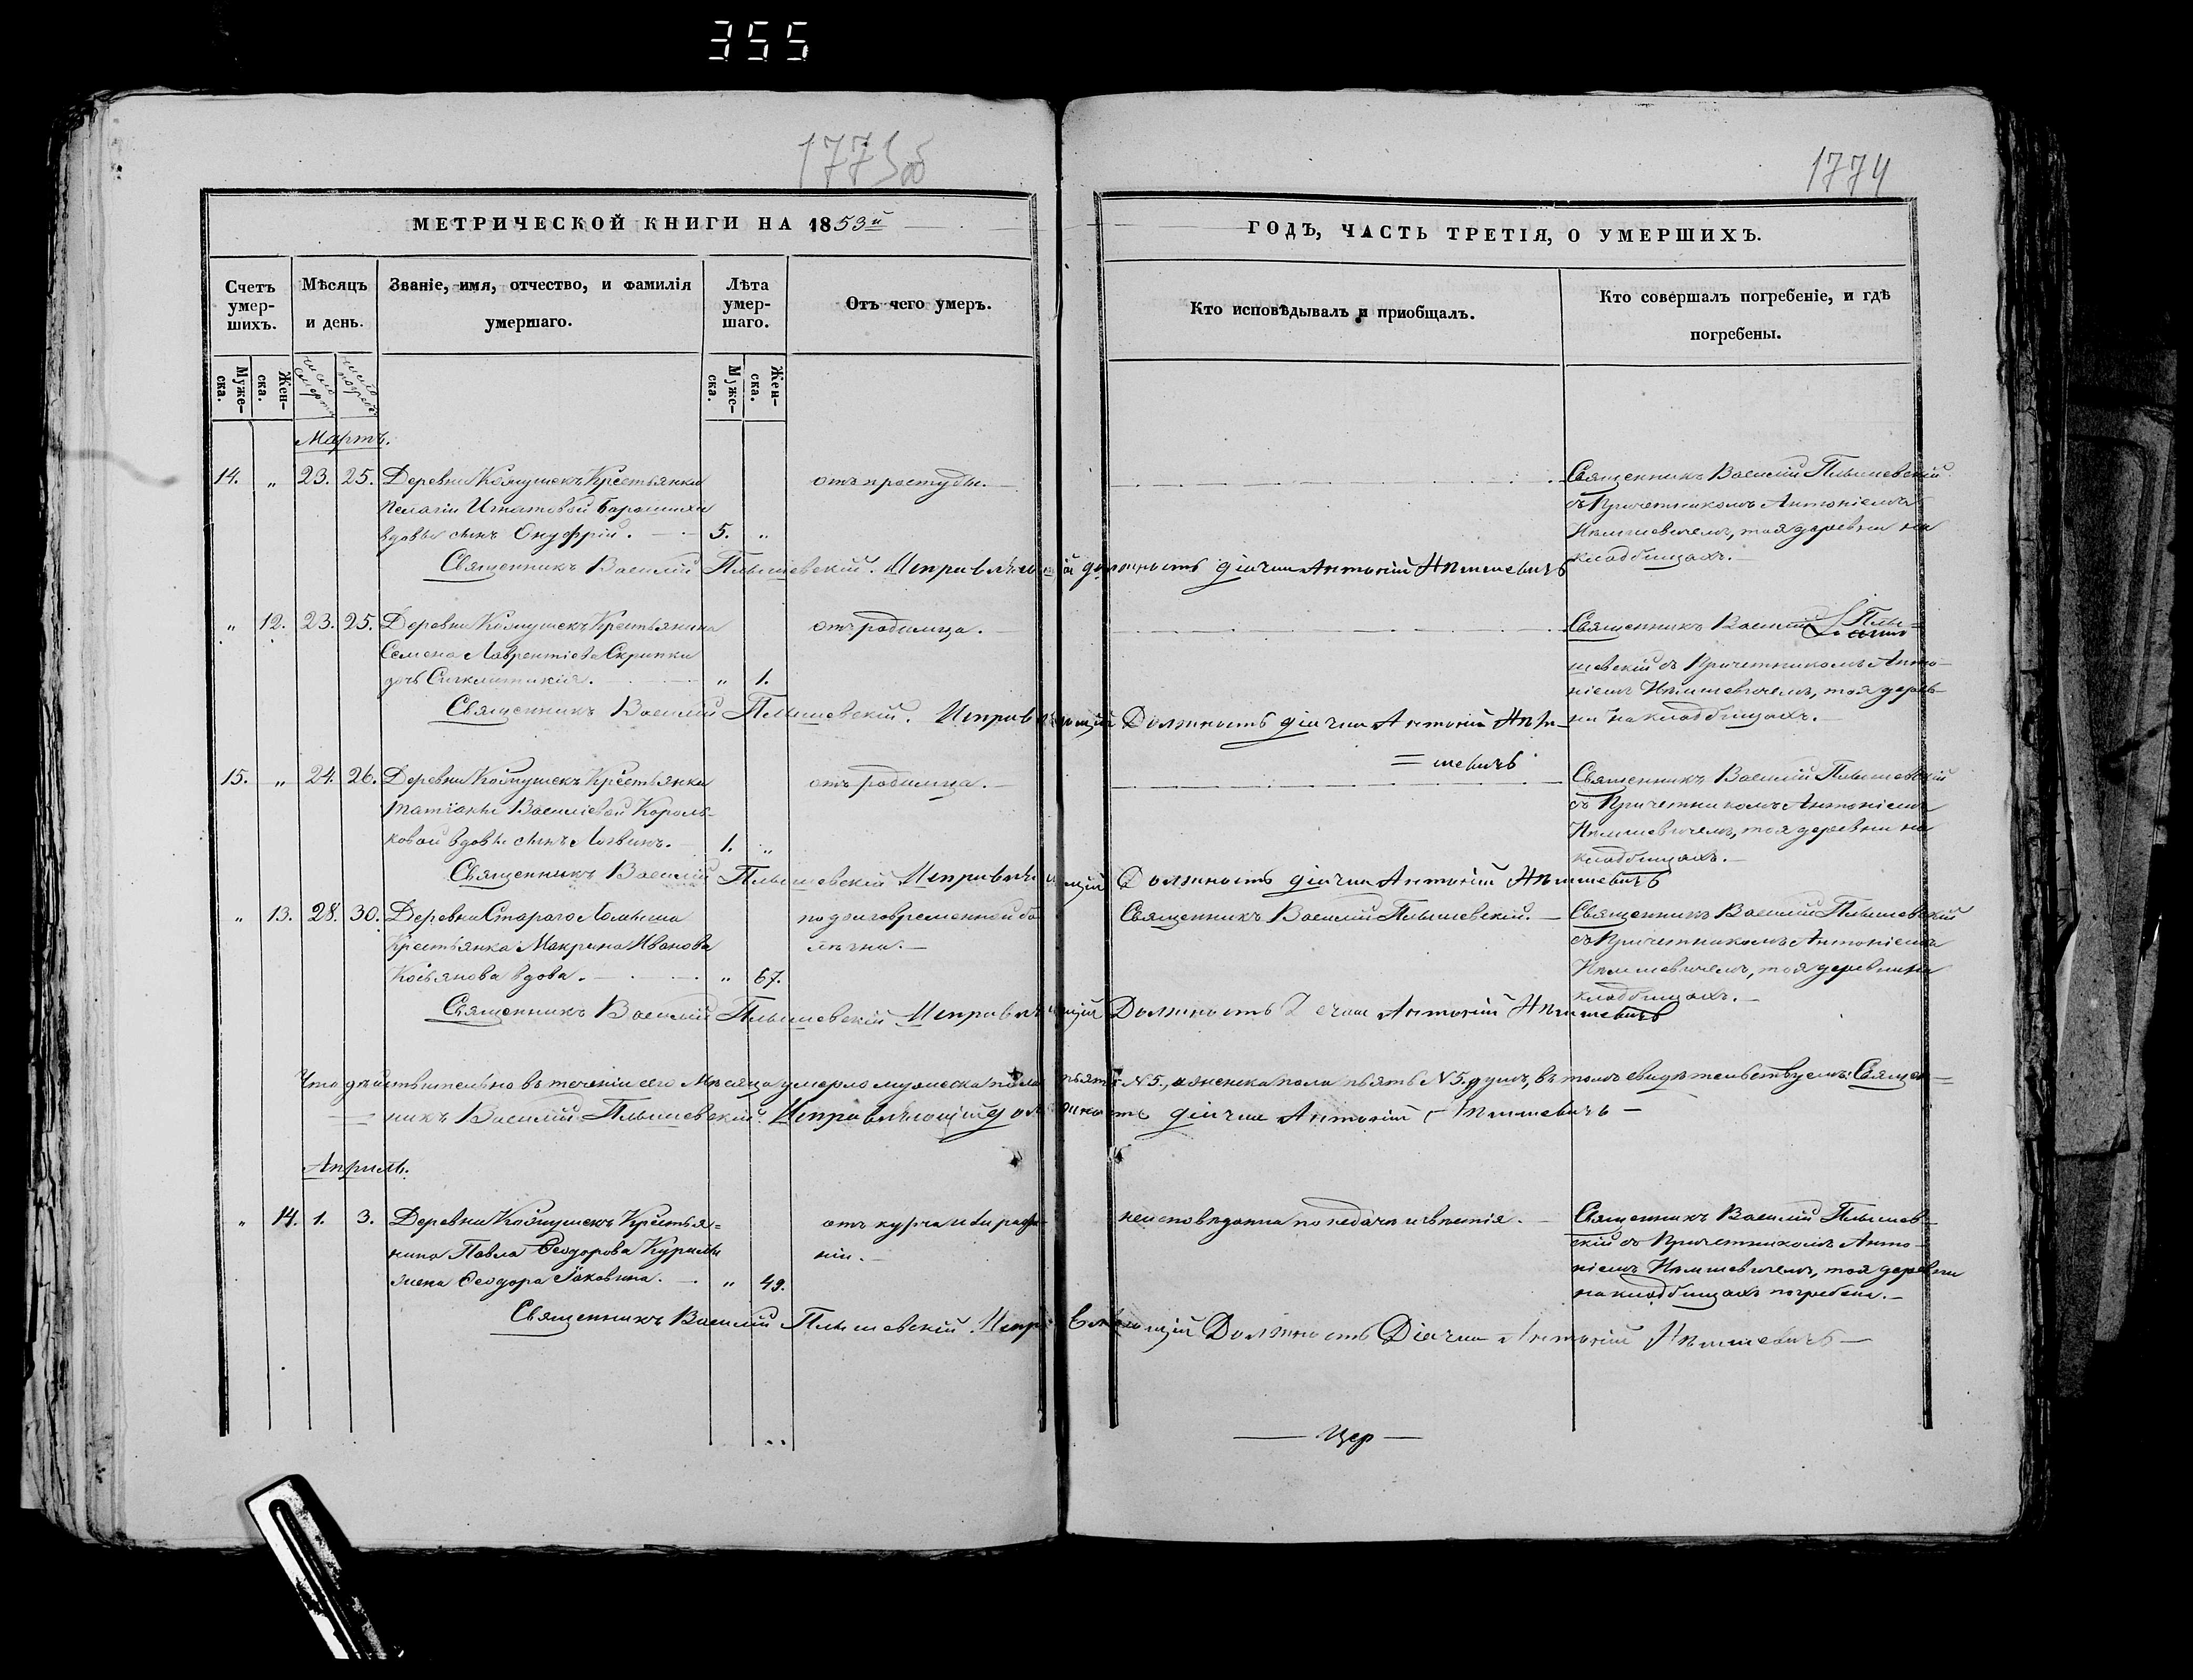 355
1773об
1774
МЕТРИЧЕСКОЙ КНИГИ НА 1853й
Счетъ умер-шихъ.
Мѣсяцъ и день.
Званіе, имя, отчество, и фамилія умершаго.
Лѣта умер-шаго.
Отъ чего умеръ.
Муже-ска.
Жен-ска.
Муже-ска.
Жен-ска.
ГОДЪ, ЧАСТЬ ТРЕТІЯ, О УМЕРШИХЪ.
Кто исповѣдывалъ и пріобщалъ.
Кто совершалъ погребеніе, и гдѣ погребены.
Мартъ.
14. „ 23. 25. Деревни Кожушекъ Крестьянки
Пелагіи Игнатовой
вдовы сынъ Онуфрій. 5. „
отъ простуды.
Священникъ Василій Плышевскій
съ Причетникомъ Антоніемъ
Нѣмшевичемъ, тоя деревни на
кладбищахъ.
Священникъ Василій Плышевскій. Исправляющій должность діячка Антоній Нѣмшевичъ
„ 12. 23. 25. Деревни Кожушекъ Крестьянина
Семена Лаврентіева Скрипки
дочь Сигклитикія. „ 1.
отъ родимца.
Священникъ Василій Плы-
шевскій съ Причетникомъ Анто-
ніемъ Нѣмшевичемъ, тоя дерев-
ни на кладбищахъ.
Священникъ Василій Плышевскій. Исправляющій Должность діячка Антоній Нѣм-
=шевичъ
15. „ 24. 26. Деревни Кожушекъ Крестьянки
Татіаны Василіевой Король-
ковой вдовы сынъ Логвинъ. 1. „
отъ родимца.
Священникъ Василій Плышевскій
съ Причетникомъ Антоніемъ
Нѣмшевичемъ, тоя деревни на
кладбищахъ.
Священникъ Василій Плышевскій Исправляющій Должность діячка Антоній Нѣмшевичъ
„ 13. 28. 30. Деревни Стараго Ломыша
Крестьянка Макрина Иванова
Касьянова вдова. „ 67.
по долговременной бо
лѣзни.
Священникъ Василій Плышевскій.
Священникъ Василій Плышевскій
съ Причетникомъ Антоніемъ
Нѣмшевичемъ, тоя деревни на
кладбищахъ.
Священникъ Василій Плышевскій Исправляющій Должность Антоній Нѣмшевичъ
Что дѣйствительно въ теченіи сего Мѣсяца умерло мужеска пола пять N5., а женска пола пять N5. душъ, въ томъ свидѣтельствуемъ: Священ=
=никъ Василій Плышевскій. Исправляющій должность діячка Антоній Нѣмшевичъ
Апрѣль.
„ 14. 1. 3. Деревни Кожушекъ Крестья=
нина Павла Ѳеодорова
жена Ѳеодора Іаковина. „ 49.
неисповѣданна по недачѣ извѣстія.
Священникъ Василій Плышев-
скій съ Причетникомъ Анто-
ніемъ Нѣмшевичемъ, тоя деревни
на кладбищахъ погребена.
Священникъ Василій Плышевскій. Исправляющій Должность Діячка Антоній Нѣмшевичъ
Цер